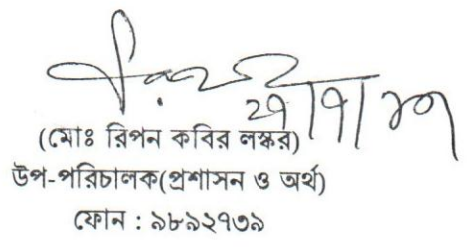 (মোঃ রিপন কবির লস্কর)
উপ-পরিচালক(প্রশাসন ও অর্থ)
ফোন : ৯৮৯২৭৩৯